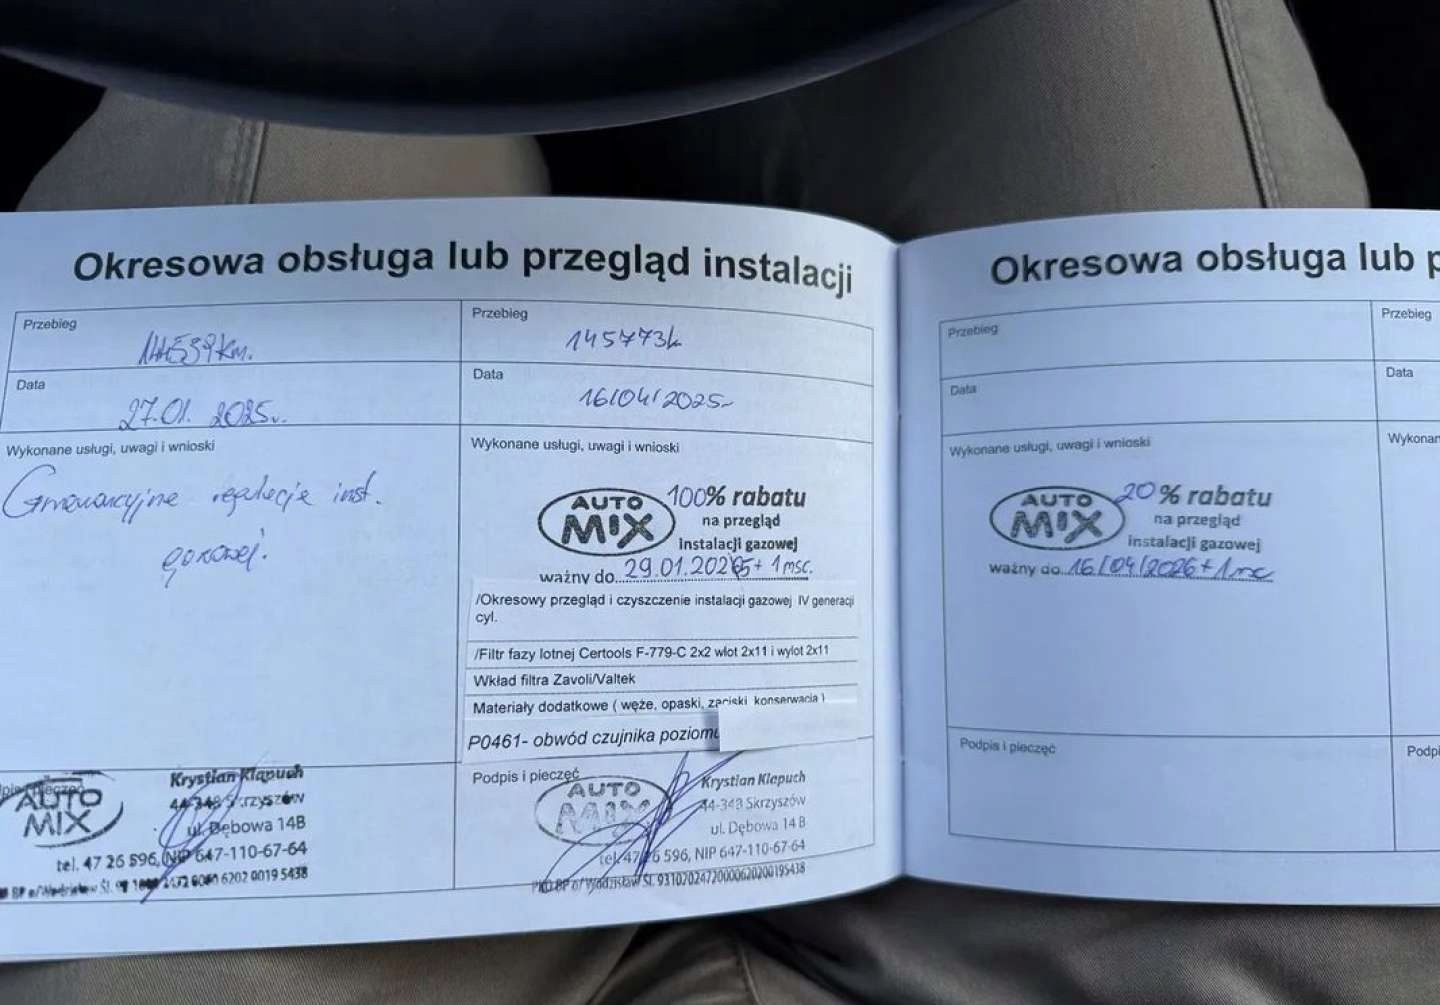 Okresowa obsługa lub przegląd instalacji
Przebieg
km.
Data
27.01. 2025r.
Wykonane usługi, uwagi i wnioski
regulacje inst.
gazowej.
AUTO
MIX
Krystian Klapuch
44-348 Skrzyszów
ul. Dębowa 14B
tel. 47 26 596, NIP 647-110-67-64
Przebieg
145773k
Data
16/04/2025
Wykonane usługi, uwagi i wnioski
AUTO
MIX
100% rabatu
na przegląd
instalacji gazowej
ważny do 29.01.2026 + 1 msc.
/Okresowy przegląd i czyszczenie instalacji gazowej IV generacji
cyl.
/Filtr fazy lotnej Certools F-779-C 2x2 wlot 2x11 i wylot 2x11
Wkład filtra Zavoli/Valtek
Materiały dodatkowe ( węże, opaski, zaciski, konserwacja )
P0461- obwód czujnika poziomu
Podpis i pieczęć
AUTO
MIX
Krystian Klapuch
44-348 Skrzyszów
ul. Dębowa 14 B
tel. 47 26 596, NIP 647-110-67-64
PKO BP o/ Wodzisław Śl. 93102024720000620200195438
Okresowa obsługa lub p
Przebieg
Data
Wykonane usługi, uwagi i wnioski
AUTO
MIX
20% rabatu
na przegląd
instalacji gazowej
ważny do 16/04/2026 + 1 msc
Podpis i pieczęć
Przebieg
Data
Wykonan
Podpi